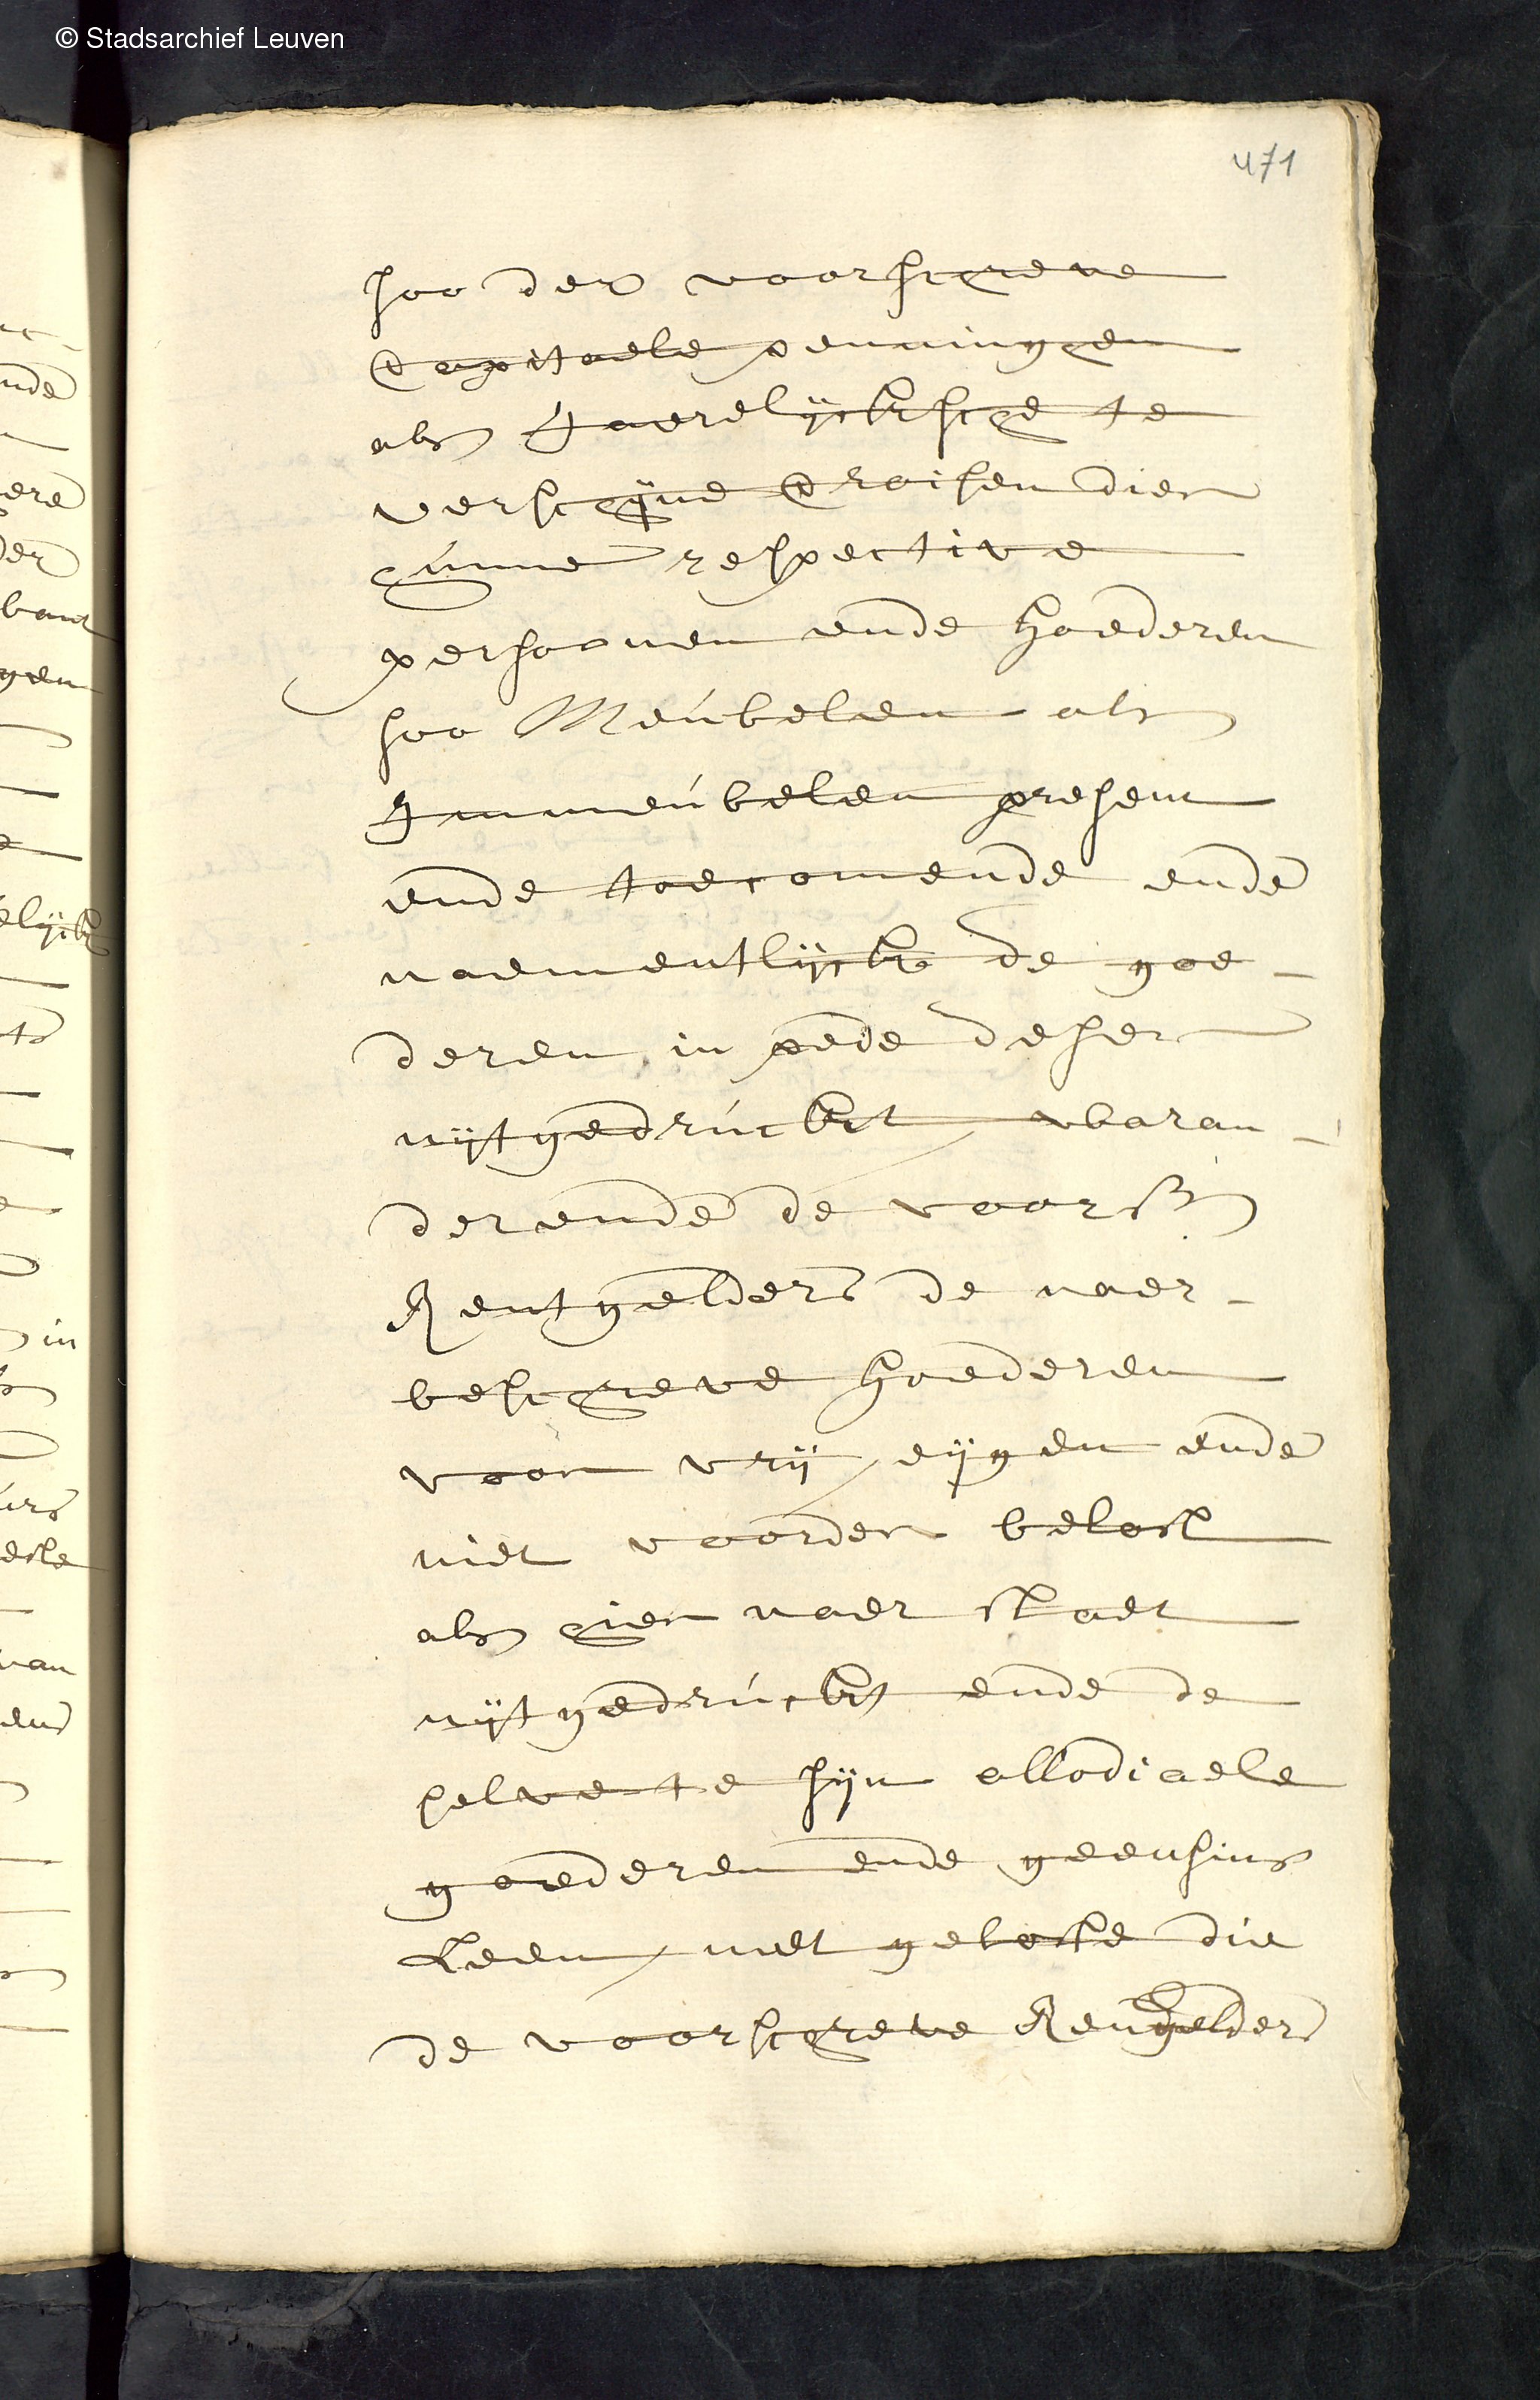 © Stadsarchief Leuven
471
soo der voorschreve
Capitaele penningen
als Jaerelijckxsche te
verschijne Croisen dier
hunne respective
persoonen ende Goederen
soo Meubelen als
Immeubelen present
ende toecomende ende
naementlijck de goe-
deren in pede deser
uijtgedruckt waran-
derende de voors.
Rentgelders de naer-
beschreve Goederen
voor vrij eijgen ende
niet voorder belast
als hier naer staet
uijtgedruckt ende de
selve te sijn allodiaele
goederen ende geensins
Leen, met gelofte die
de voorschreve Rentgelders